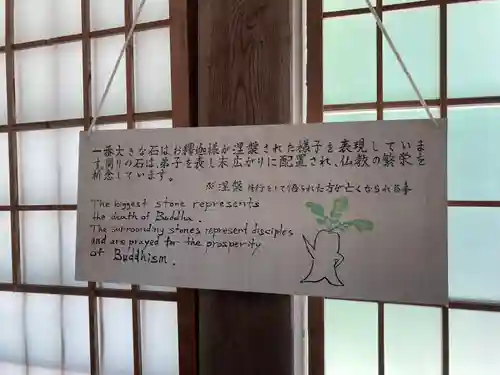 一番大きな石はお釈迦様が涅槃された様子を表現していま
す。周りの石は、弟子を表し末広がりに配置され、仏教の繁栄を
祈念しています。
※涅槃 修行をして悟られた方が亡くなられる事
The biggest stone represents
the death of Buddha.
The surrounding stones represent disciples
and are prayed for the prosperity
of Buddhism.